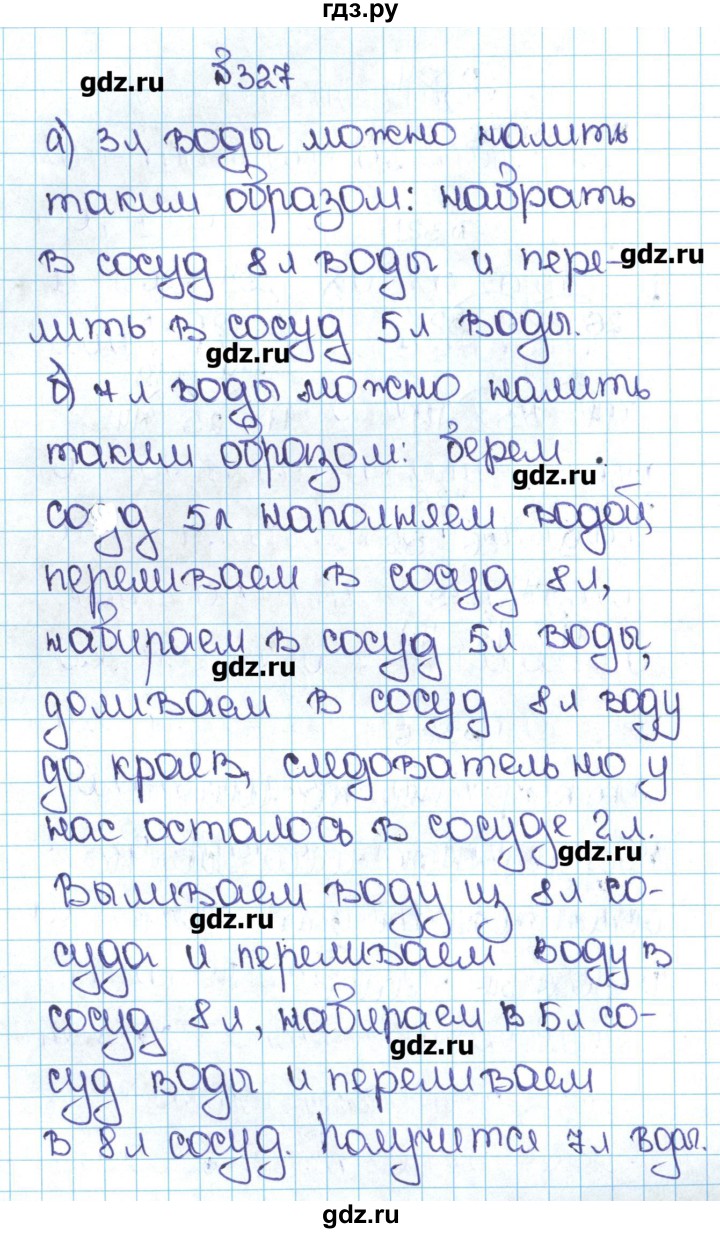 гдз.ру
№327
gdz.ru
а) 3л воды можно налить
таким образом: набрать
в сосуд 8л воды и пере-
gdz.ru
лить в сосуд 5л воды.
gdz.ru
б) 7л воды можно налить
таким образом: берем
gdz.ru
сосуд 5л наполняем водой,
переливаем в сосуд 8л,
набираем в сосуд 5л воды,
gdz.ru
доливаем в сосуд 8л воду
до краев, следовательно у
нас осталось в сосуде 2л.
gdz.ru
Выливаем воду из 8л со-
gdz.ru
суда и переливаем воду в
сосуд 8л, набираем в 5л со-
gdz.ru
суд воды и переливаем
в 8л сосуд. Получится 7л воды.
gdz.ru